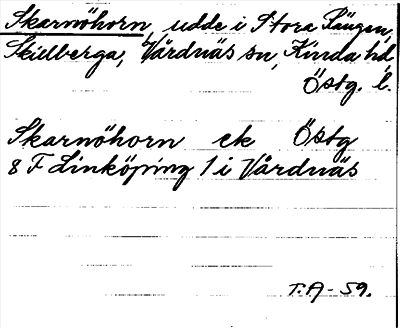 Skarnöhorn, udde i Stora Rängen,
Skidberga, Vårdnäs sn, Kinda hd
Östg. l.
Skarnöhorn ek Östg
8 F Linköping 1 i Vårdnäs
T.A-59.